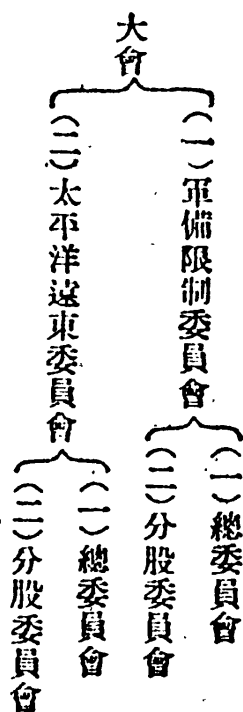 大會
（一）軍備限制委員會
（一）總委員會
（二）分股委員會
（二）太平洋遠東委員會
（一）總委員會
（二）分股委員會